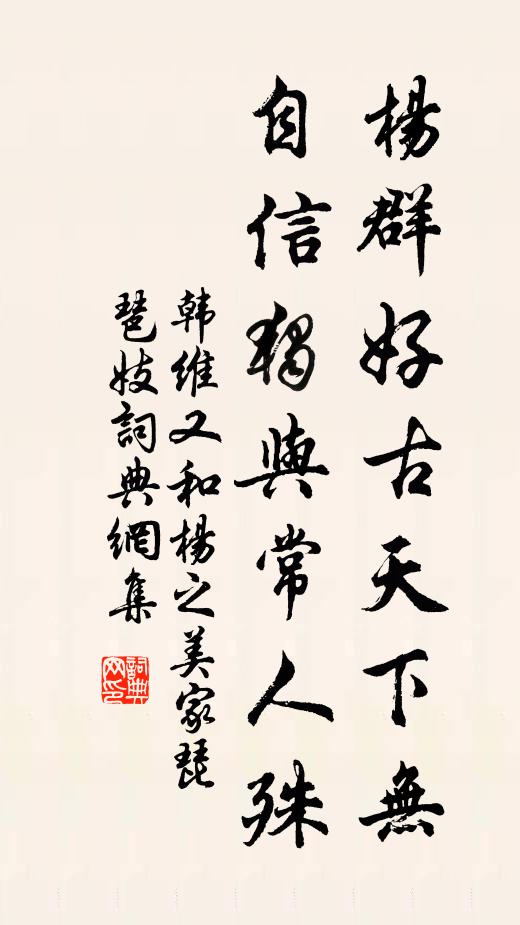 楊群好古天下無
自信獨與常人殊
韩維又和楊之美家琵
琶妓詞典網集
詞典網印